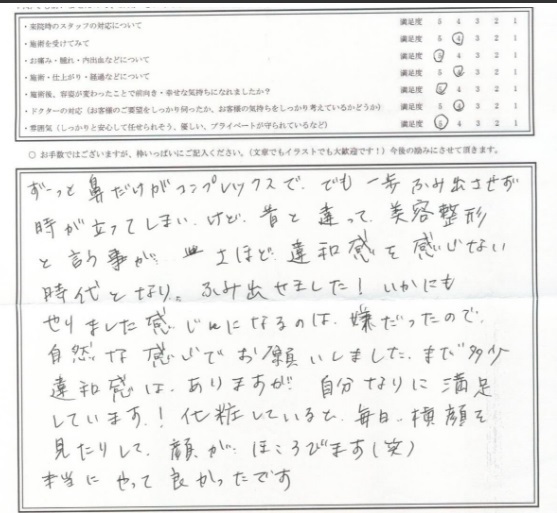 ・来院時のスタッフの対応について 満足度 5 4 3 2 1
・施術を受けてみて 満足度 5 4 3 2 1
・お痛み・腫れ・内出血などについて 満足度 5 4 3 2 1
・施術・仕上がり・経過などについて 満足度 5 4 3 2 1
・施術後、容姿が変わったことで前向き・幸せな気持ちになれましたか? 満足度 5 4 3 2 1
・ドクターの対応(お客様のご要望をしっかり伺ったか、お客様の気持ちをしっかり考えているかどうか) 満足度 5 4 3 2 1
・雰囲気(しっかりと安心して任せられそう、優しい、プライベートが守られているなど) 満足度 5 4 3 2 1
○ お手数ではございますが、枠いっぱいにご記入ください。(文章でもイラストでも大歓迎です!)今後の励みにさせて頂きます。
ずーっと鼻だけがコンプレックスで、でも一歩ふみ出させず
時が立ってしまい、けど、昔と違って、美容整形
と言う事が、さほど違和感を感じない
時代となり、ふみ出せました!いかにも
やりました感じになるのは、嫌だったので、
自然な感じでお願いしました、まだ多少
違和感は、ありますが自分なりに満足
しています!化粧していると、毎日、横顔を
見たりして、顔が、ほころびます(笑)
本当にやって良かったです